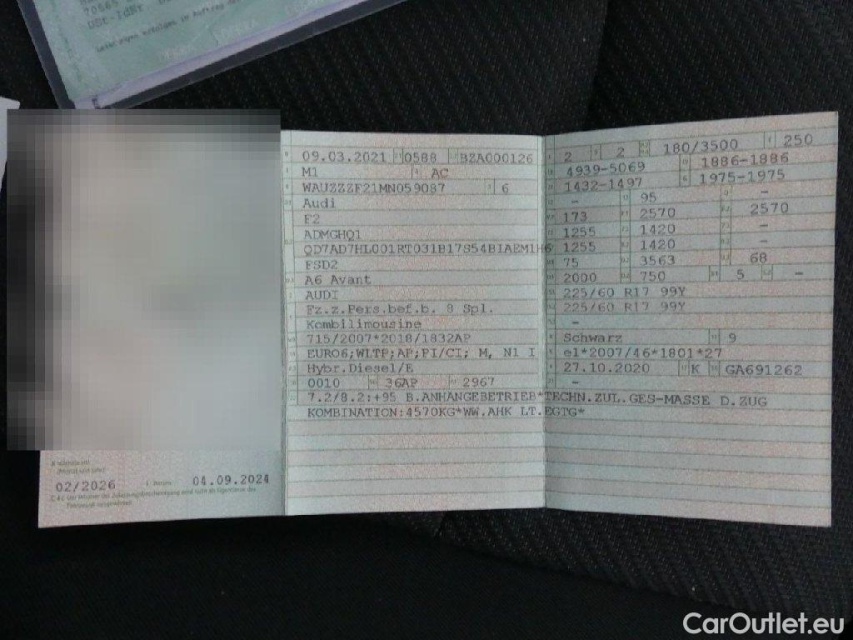 70565
USt-IdNr
02/2026 04.09.2024
09.03.2021 0588 BZA000126
M1 AC
WAUZZZF21MN059087 6
Audi
F2
ADMGHQ1
QD7AD7HL001RT031B17S54BIAEM1H6
FSD2
A6 Avant
AUDI
Fz.z.Pers.bef.b. 8 Spl.
Kombilimousine
715/2007*2018/1832AP
EURO6;WLTP;AP;PI/CI; M, N1 I
Hybr.Diesel/E
0010 36AP 2967
7.2/8.2:+95 B.ANHANGEBETRIEB*TECHN.ZUL.GES-MASSE D.ZUG
KOMBINATION:4570KG*WW.AHK LT.EGTG*
2 2 180/3500 250
4939-5069 1886-1886
1432-1497 1975-1975
- 95 -
173 2570 2570
1255 1420 -
1255 1420 -
75 3563 68
2000 750 5 -
225/60 R17 99Y
225/60 R17 99Y
-
Schwarz 9
e1*2007/46*1801*27
27.10.2020 K GA691262
-
CarOutlet.eu